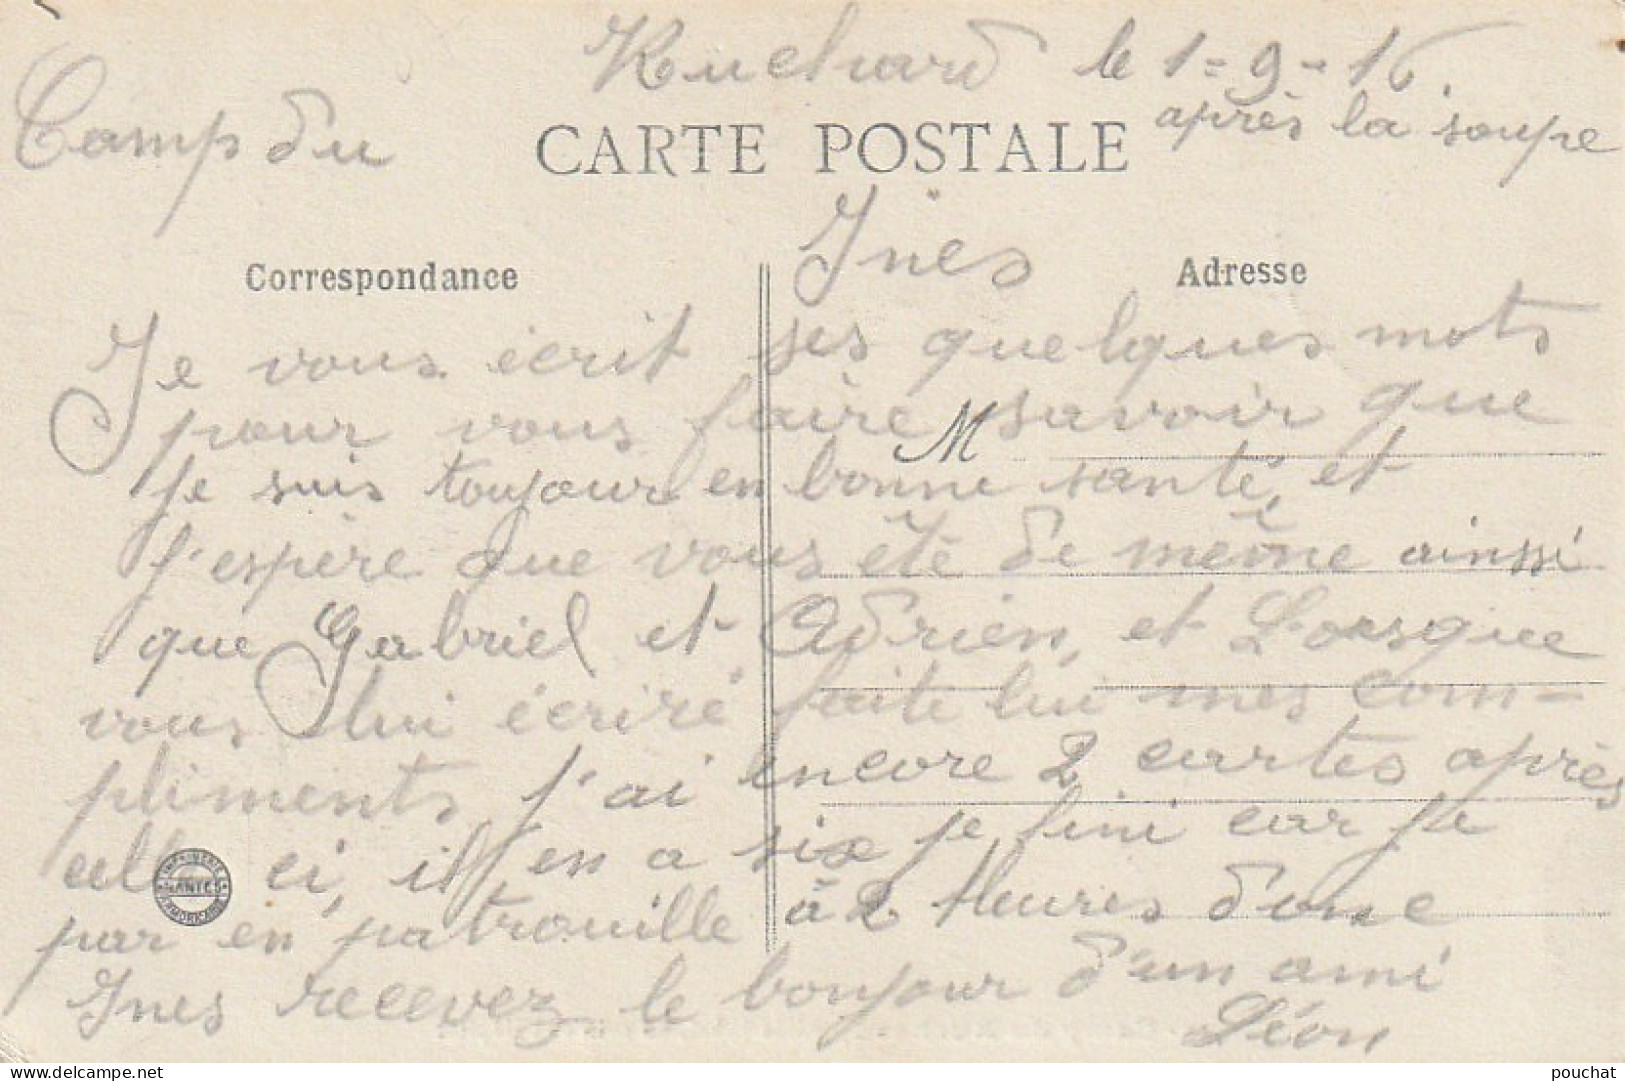 Camp du Ruchard le 1-9-16
après la soupe
CARTE POSTALE
Ines
Correspondance
Adresse
Je vous écrit ses quelques mots
pour vous faire savoir que
M
je suis toujour en bonne santé, et
j'espère que vous été de même ainssi
que Gabriel et Adrien, et Lorsque
vous lui écriré faite lui mes com-
pliments j'ai encore 2 cartes après
celle ci, il en a six je fini car je
par en patrouille à 2 Heures donc
Ines recevez le bonjour d'un ami
Léon
IMPRIMERIE
NANTES
ARMORICAINE
pouchat